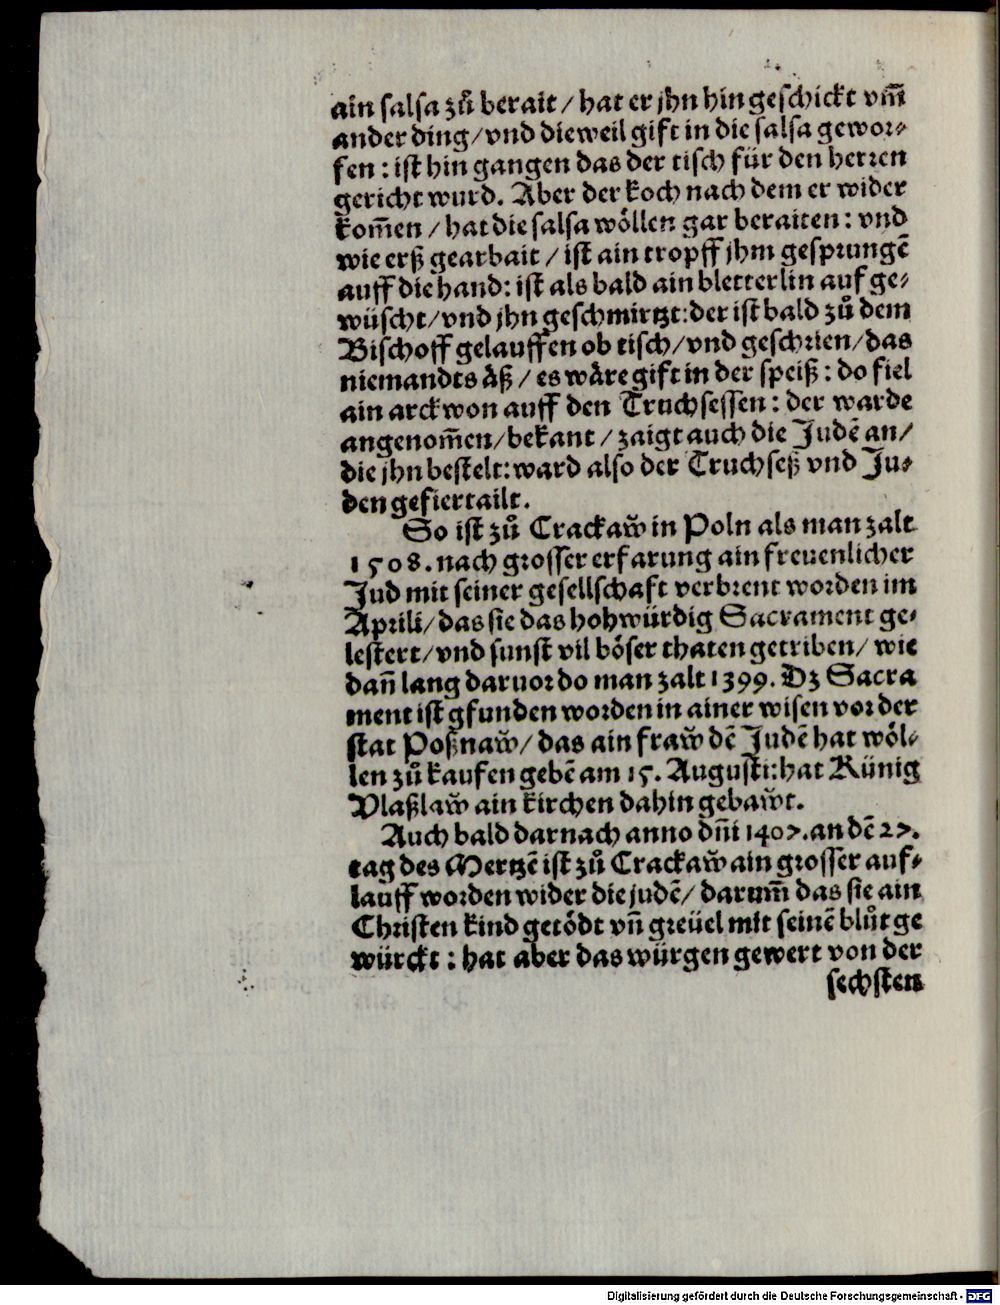 ain salsa zů berait / hat er jhn hin geschickt vm̄
ander ding / vnd dieweil gift in die salsa gewor⸗
fen : ist hin gangen das der tisch für den herren
gericht wurd. Aber der koch nach dem er wider
kom̄en / hat die salsa wöllen gar beraiten : vnd
wie erß gearbait / ist ain tropff jhm gesprungē
auff die hand : ist als bald ain bletterlin auf ge⸗
wüscht / vnd jhn geschmirtzt : der ist bald zů dem
Bischoff gelauffen ob tisch / vnd geschrien / das
niemandts äß / es wäre gift in der speiß : do fiel
ain arckwon auff den Truchsessen : der warde
angenom̄en / bekant / zaigt auch die Judē an /
die jhn bestelt : ward also der Truchseß vnd Ju⸗
den gefiertailt.
So ist zů Crackaw̆ in Poln als man zalt
1508. nach grosser erfarung ain freuenlicher
Jud mit seiner gesellschaft verbrent worden im
Aprili / das sie das hohwürdig Sacrament ge⸗
lestert / vnd sunst vil böser thaten getriben / wie
dañ lang daruor do man zalt 1399. Dz Sacra
ment ist gfunden worden in ainer wisen vor der
stat Poßnaw̆ / das ain fraw̆ dē Judē hat wöl⸗
len zů kaufen gebē am 15. Augusti : hat Künig
Vlaßlaw̆ ain kirchen dahin gebaw̆t.
Auch bald darnach anno dñi 1407. an dē 27.
tag des Mertzē ist zů Crackaw̆ ain grosser auf⸗
lauff worden wider die judē / darum̄ das sie ain
Christen kind getödt vñ greüel mit seinē blůt ge
würckt : hat aber das würgen gewert von der
sechsten
Digitalisierung gefördert durch die Deutsche Forschungsgemeinschaft - DFG